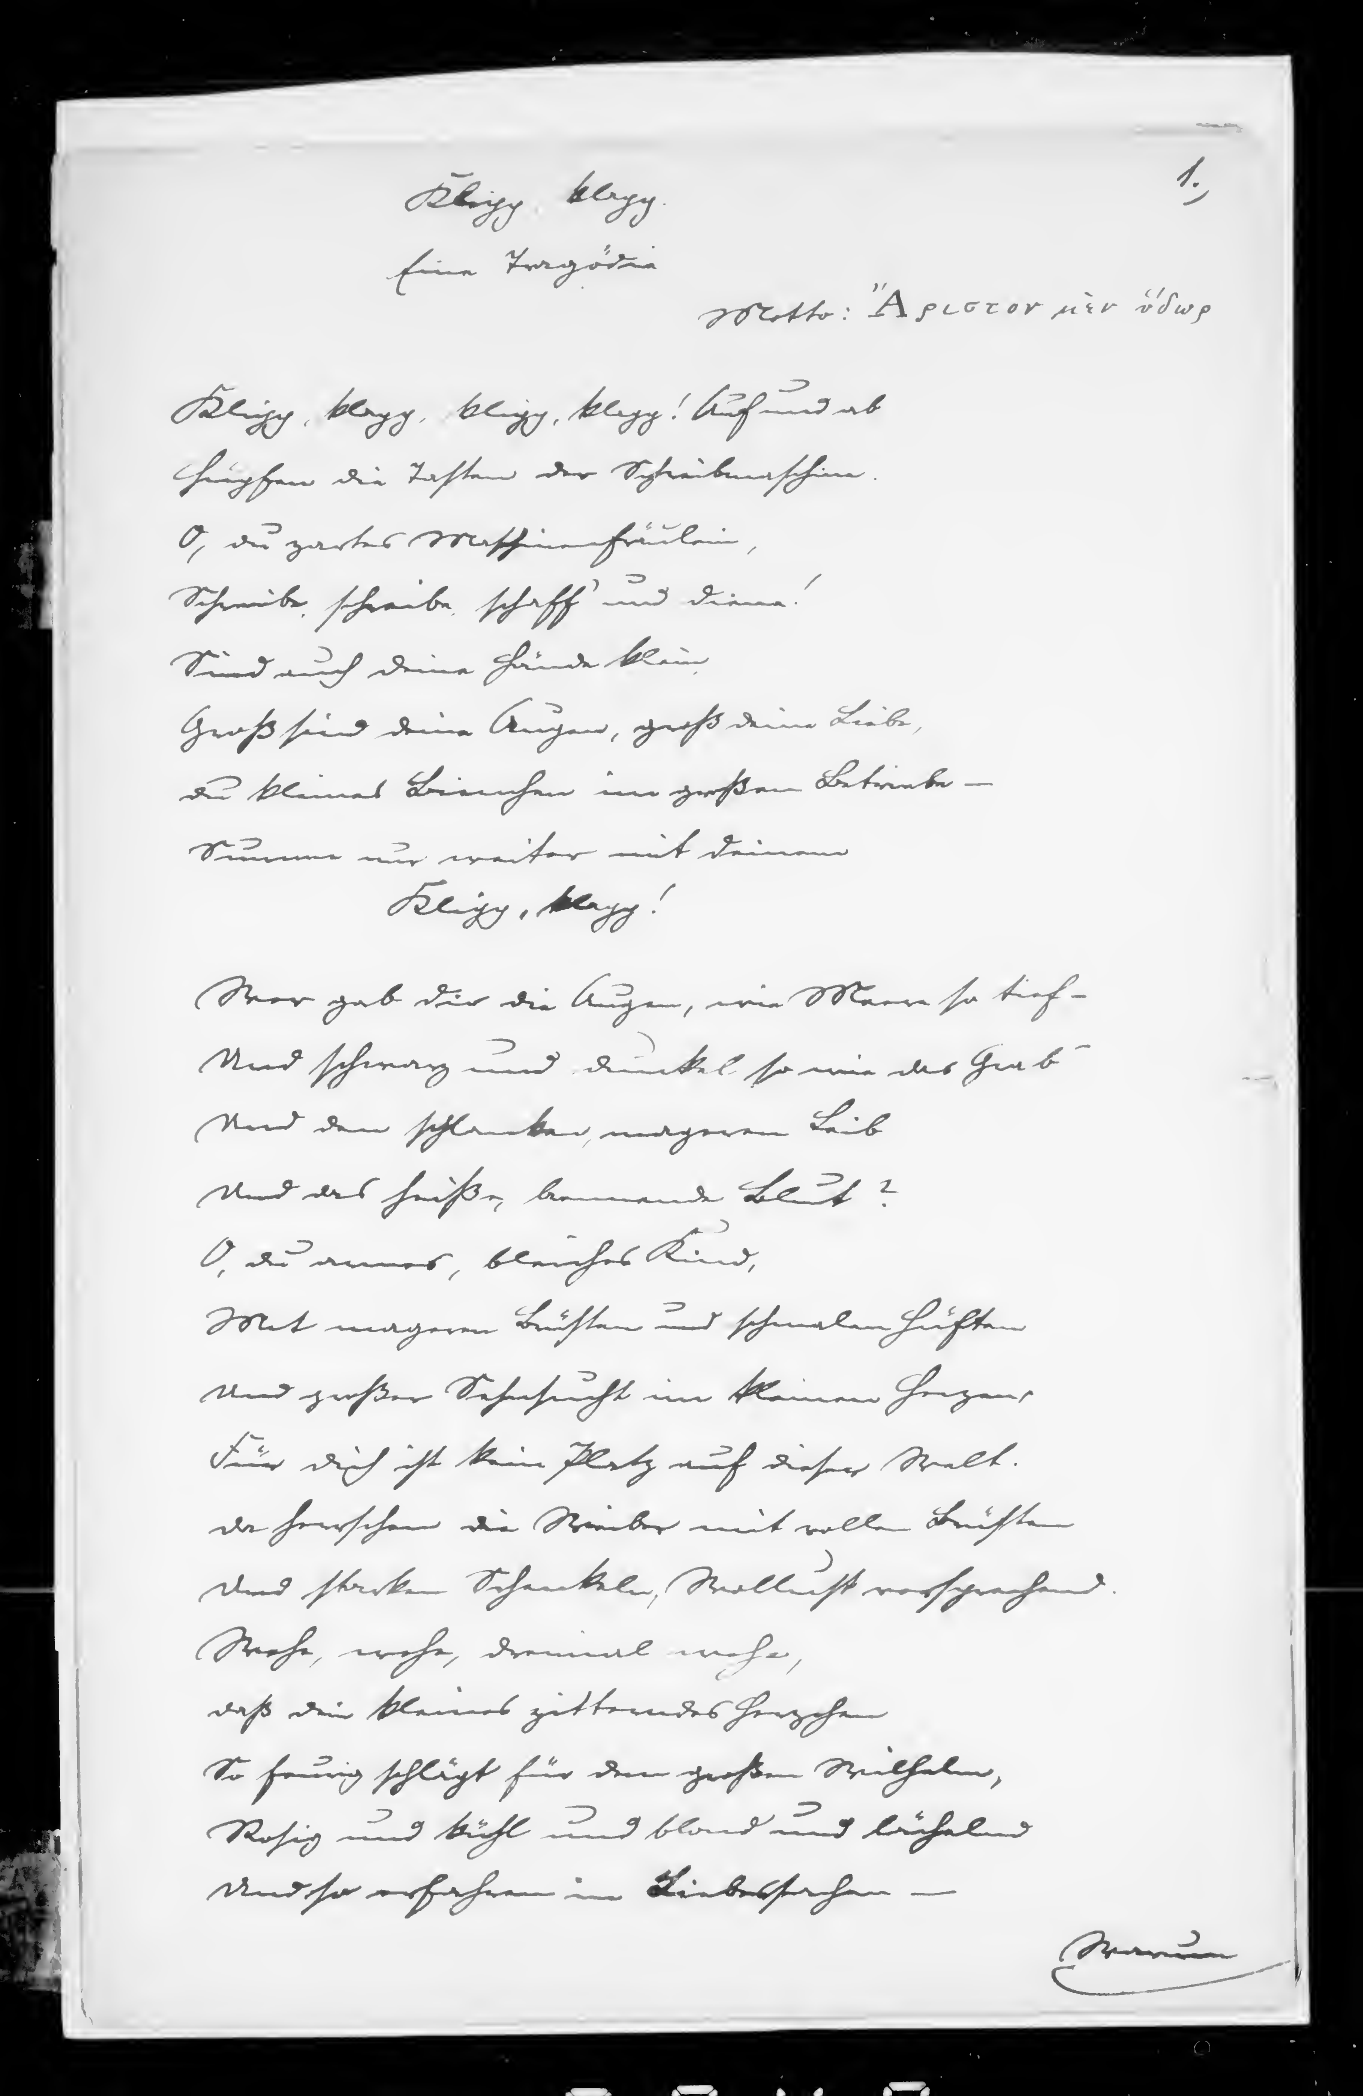 1.)
Klipp klapp.
Eine Tragödie
Motto: Ἄριστον μὲν ὕδωρ
Klipp, klapp, klipp, klapp! Auf und ab
Hüpfen die Tasten der Schreibmaschine.
O, du zartes Maschinenfräulein,
Schreibe, schreibe, schaff' und diene!
Sind auch deine Hände klein,
Groß sind deine Augen, groß deine Liebe,
du kleines Bienchen im großen Betriebe –
Summe nur weiter mit deinem
Klipp, klapp!
Wer gab dir die Augen, wie Meere so tief –
Und schwarz und dunkel so wie das Grab –
Und den schlanken, mageren Leib
Und das heiße, brennende Blut?
O, du armes, bleiches Kind,
Mit mageren Brüsten und schmalen Hüften
Und großer Sehnsucht im kleinen Herzen,
Für dich ist kein Platz auf dieser Welt.
da herrschen die Weiber mit vollen Brüsten
Und starken Schenkeln, Wollust versprechend.
Wehe, wehe, dreimal wehe,
daß dein kleines zitterndes Herzchen
So feurig schlägt für den großen Wilhelm,
Rosig und kühl und blond und lächelnd
Und so erfahren in Liebessachen –
Warum